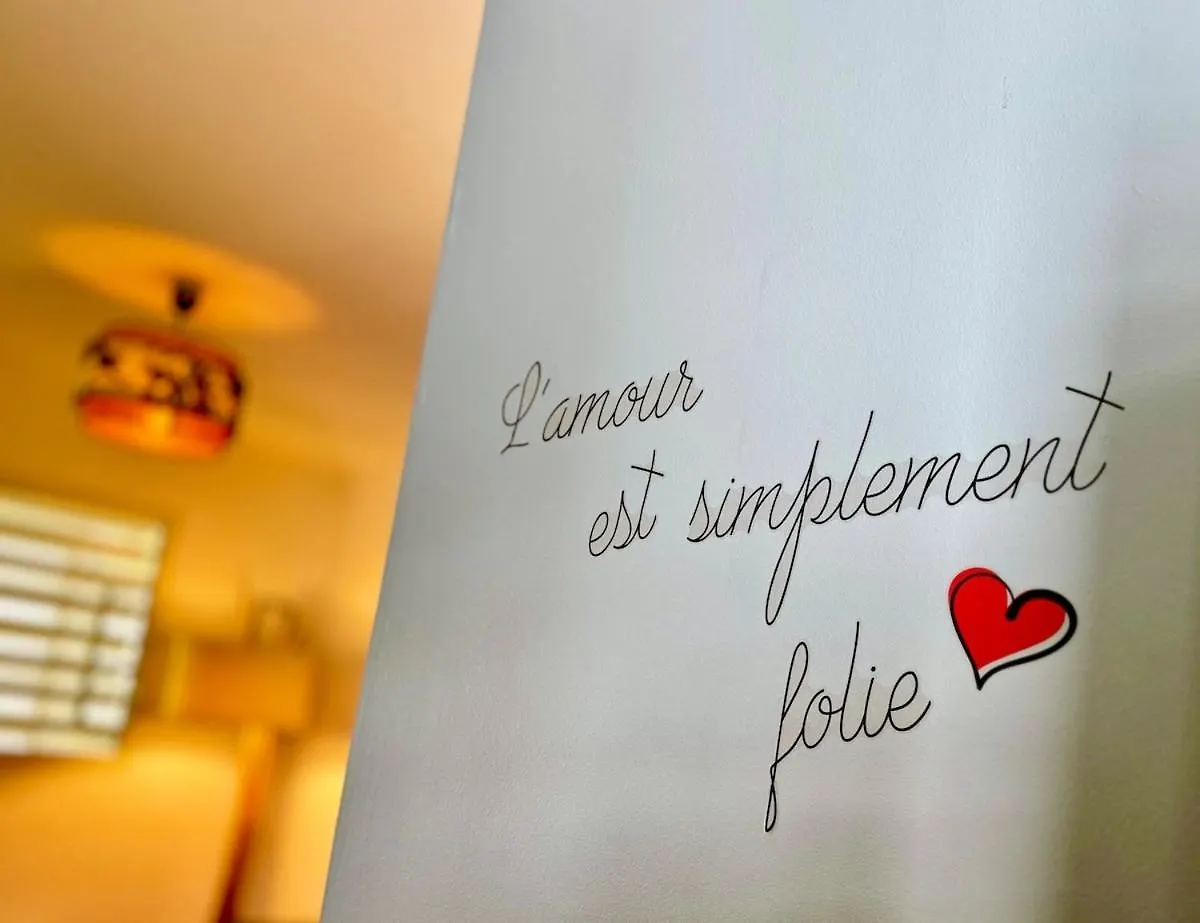 L'amour
est simplement
folie